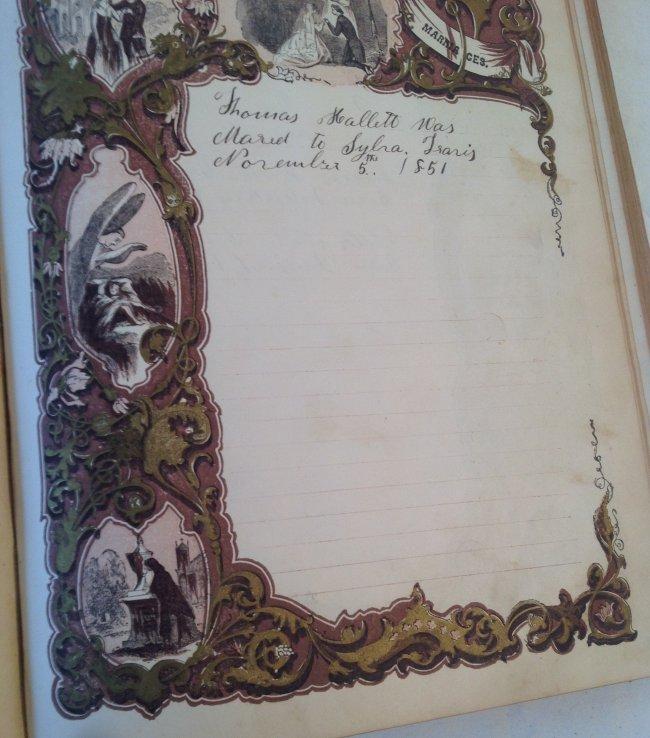 MARRIAGES.
Thomas Hallett Was
Mared to Sylva. Travis
November 5th. 1851